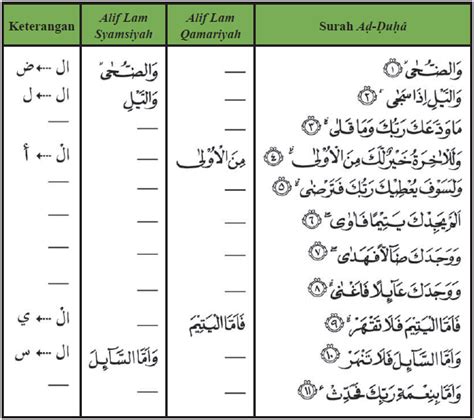 Keterangan | Alif Lam Syamsiyah | Alif Lam Qamariyah | Surah Aḍ-Ḍuḥā
ال ← ض | وَالضُّحٰىۙ | — | وَالضُّحٰىۙ ﴿١﴾
ال ← ل | وَالَّيْلِ | — | وَالَّيْلِ اِذَا سَجٰىۙ ﴿٢﴾
— | — | — | مَا وَدَّعَكَ رَبُّكَ وَمَا قَلٰىۗ ﴿٣﴾
الْ ← أ | — | مِنَ الْاُوْلٰى | وَلَلْاٰخِرَةُ خَيْرٌ لَّكَ مِنَ الْاُوْلٰىۗ ﴿٤﴾
— | — | — | وَلَسَوْفَ يُعْطِيْكَ رَبُّكَ فَتَرْضٰىۗ ﴿٥﴾
— | — | — | اَلَمْ يَجِدْكَ يَتِيْمًا فَاٰوٰىۖ ﴿٦﴾
— | — | — | وَوَجَدَكَ ضَاۤلًّا فَهَدٰىۖ ﴿٧﴾
— | — | — | وَوَجَدَكَ عَاۤىِٕلًا فَاَغْنٰىۗ ﴿٨﴾
الْ ← ي | — | فَاَمَّا الْيَتِيْمَ | فَاَمَّا الْيَتِيْمَ فَلَا تَقْهَرْۗ ﴿٩﴾
ال ← س | وَاَمَّا السَّاۤىِٕلَ | — | وَاَمَّا السَّاۤىِٕلَ فَلَا تَنْهَرْۗ ﴿١٠﴾
— | — | — | وَاَمَّا بِنِعْمَةِ رَبِّكَ فَحَدِّثْ ﴿١١﴾